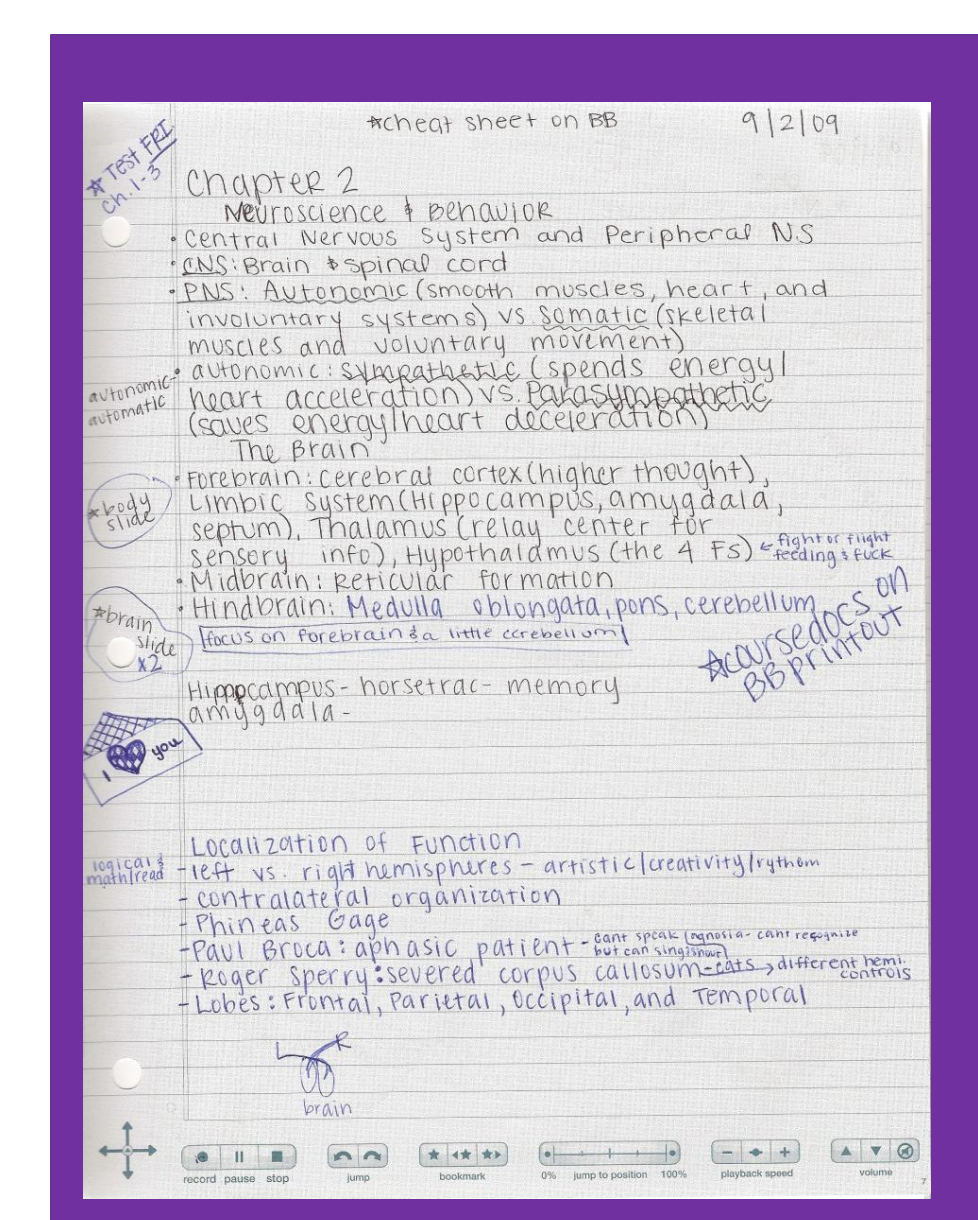 *cheat sheet on BB
9/2/09
* Test FRI
Ch. 1-3
Chapter 2
Neuroscience & Behavior
• Central Nervous System and Peripheral N.S
• CNS: Brain & spinal cord
• PNS: Autonomic (smooth muscles, heart, and
involuntary systems) vs Somatic (skeletal
muscles and voluntary movement)
• autonomic: sympathetic (spends energy/
autonomic-
automatic
heart acceleration) vs. Parasympathetic
(saves energy/heart deceleration)
The Brain
• Forebrain: cerebral cortex (higher thought),
*body
slide
Limbic System (Hippocampus, amygdala,
septum), Thalamus (relay center for
sensory info), Hypothalamus (the 4 Fs) ← fight or flight
feeding & fuck
• Midbrain: Reticular formation
• Hindbrain: Medulla oblongata, pons, cerebellum
*brain
slide
x2
focus on forebrain & a little cerebellum
*coursedocs on
BB printout
Hippocampus - horsetrac - memory
amygdala -
I you
Localization of Function
logical &
math/read
- left vs. right hemispheres - artistic/creativity/rythom
- contralateral organization
- Phineas Gage
- Paul Broca: aphasic patient - cant speak (agnosia- cant recognize
but can sing/shout)
- Roger Sperry: severed corpus callosum - cats → different hemi.
controls
- Lobes: Frontal, Parietal, Occipital, and Temporal
L R
brain
record pause stop
jump
bookmark
0% jump to position 100%
playback speed
volume
7